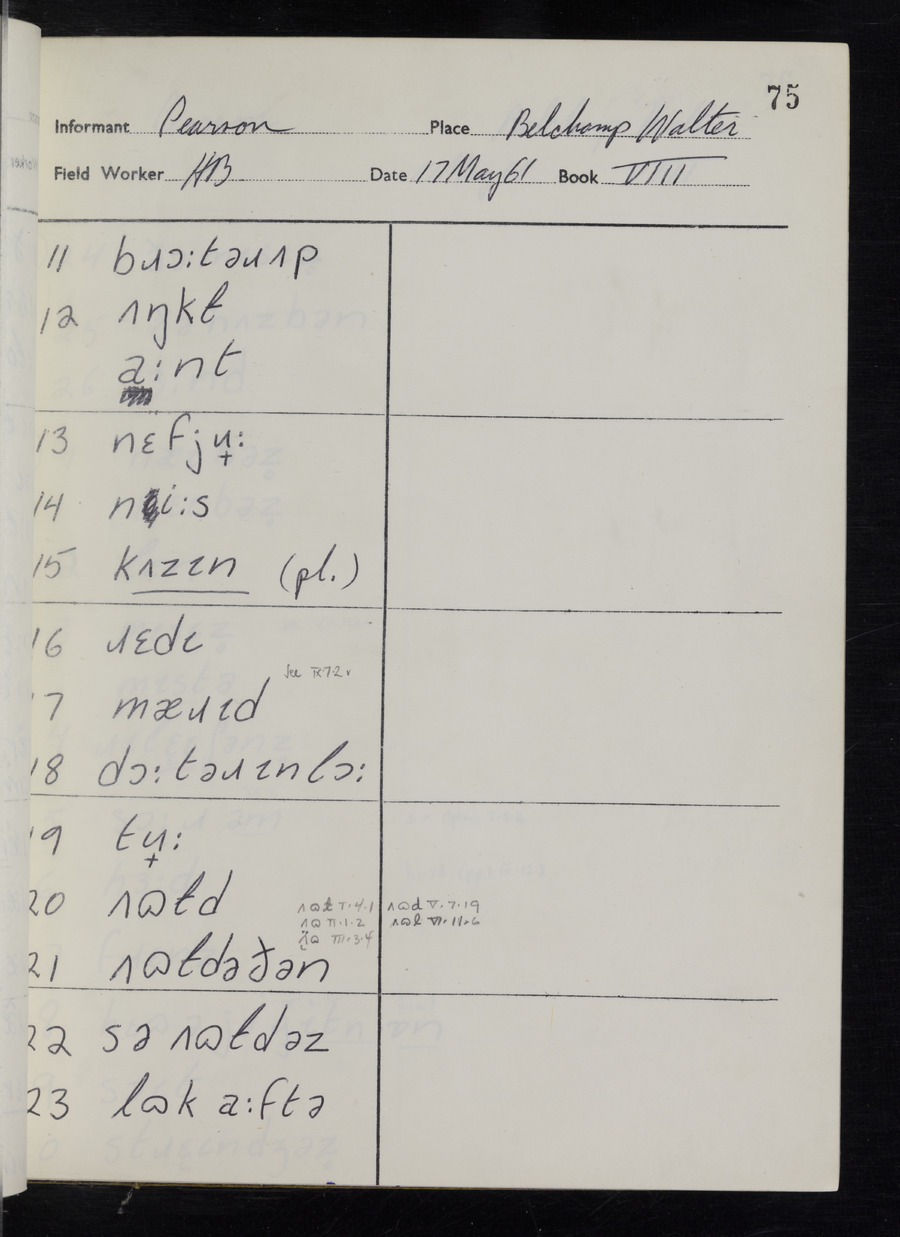 75
Informant Pearson Place Belchamp Walter
Field Worker HB Date 17 May 61 Book VIII
11 bɹɔ:təɹʌp
12 ʌŋkɫ
a:nt
13 nɛfjʉ̟:
14 ni:s
15 kʌzɪn (pl.)
16 ɹɛdɪ
See IX.7.2.
17 mæɹɪd
18 dɔ:təɹɪnlɔ:
19 tʉ̟:
20 ʌɷɫd ʌɷɫ I.4.1 ʌɷd V.7.19
ʌɷ II.1.2 ʌɷɫ VI.11.6
III.3.4
21 ʌɷɫdəðən
22 sə ʌɷɫdəz
23 lɷk a:ftə